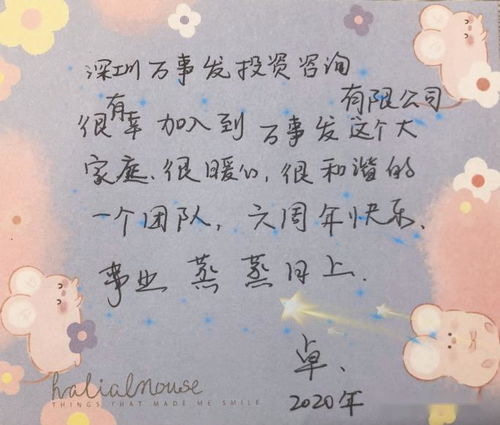 深圳万事发投资咨询
有限公司
很有幸加入到万事发这个大
家庭、很暖心,很和谐的
一个团队,六周年快乐、
事业蒸蒸日上.
卓、
2020年
halialmouse
THINGS THAT MADE ME SMILE